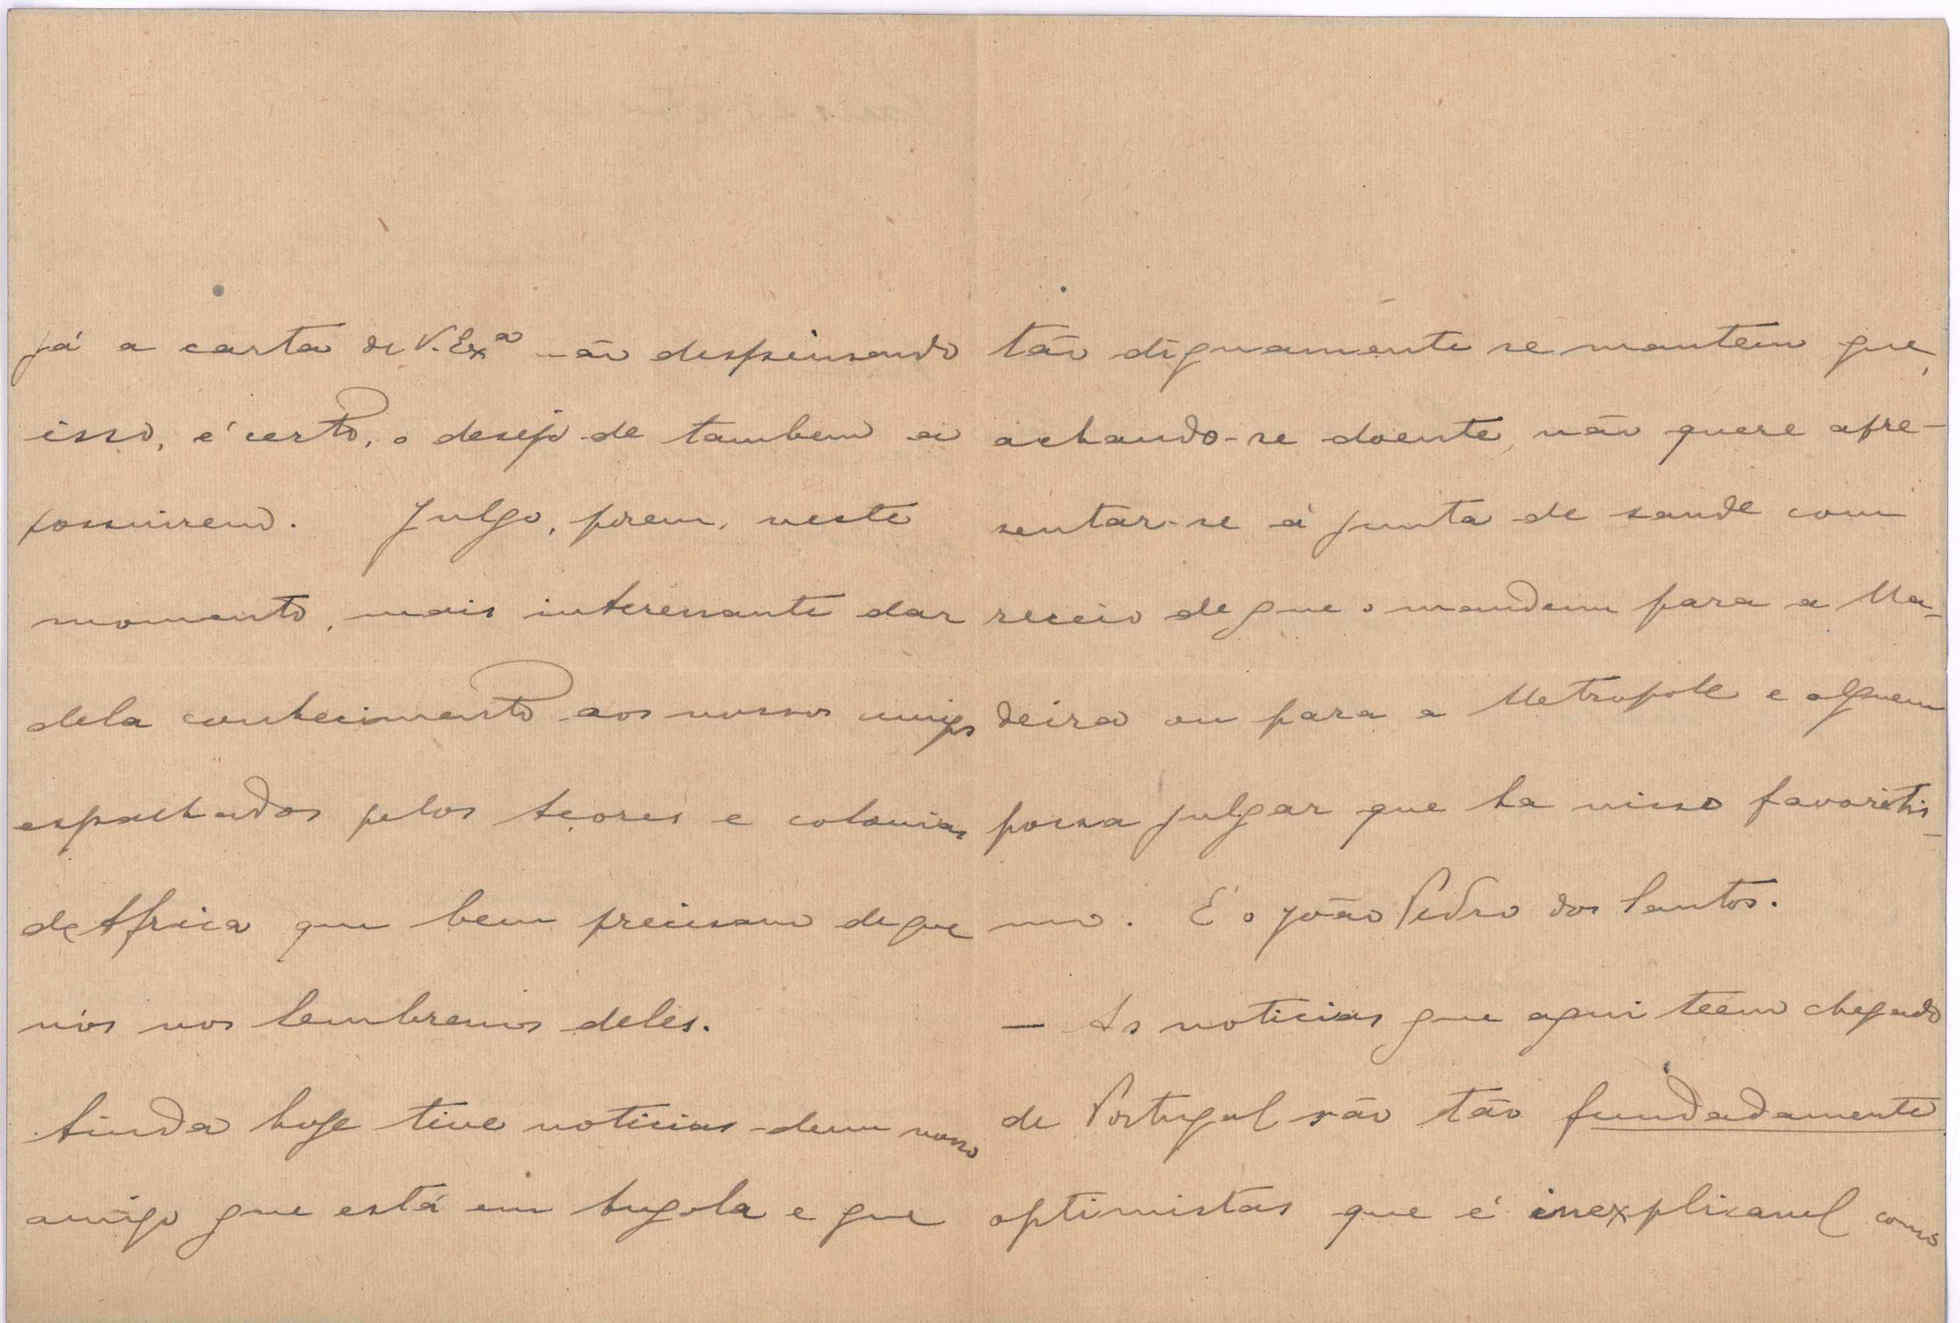 já a carta de V. Exª não despensando
isso, é certo, o desejo de tambem a
possuirem. Julgo, porem, neste
momento, mais interessante dar
dela conhecimento aos nossos amigos
espalhados pelos Açores e colonias
de Africa que bem precisam de que
nós nos lembremos deles.
Ainda hoje tive noticias dum nosso
amigo que está em Angola e que
tão dignamente se mantem que,
achando-se doente, não quere apre-
sentar-se á junta de saude com
receio de que o mandem para a Ma-
deira ou para a Metropole e alguem
possa julgar que ha nisso favoritis-
mo. É o João Pedro dos Santos.
— As noticias que aqui teem chegado
de Portugal são tão fundadamente
optimistas que é inexplicavel como